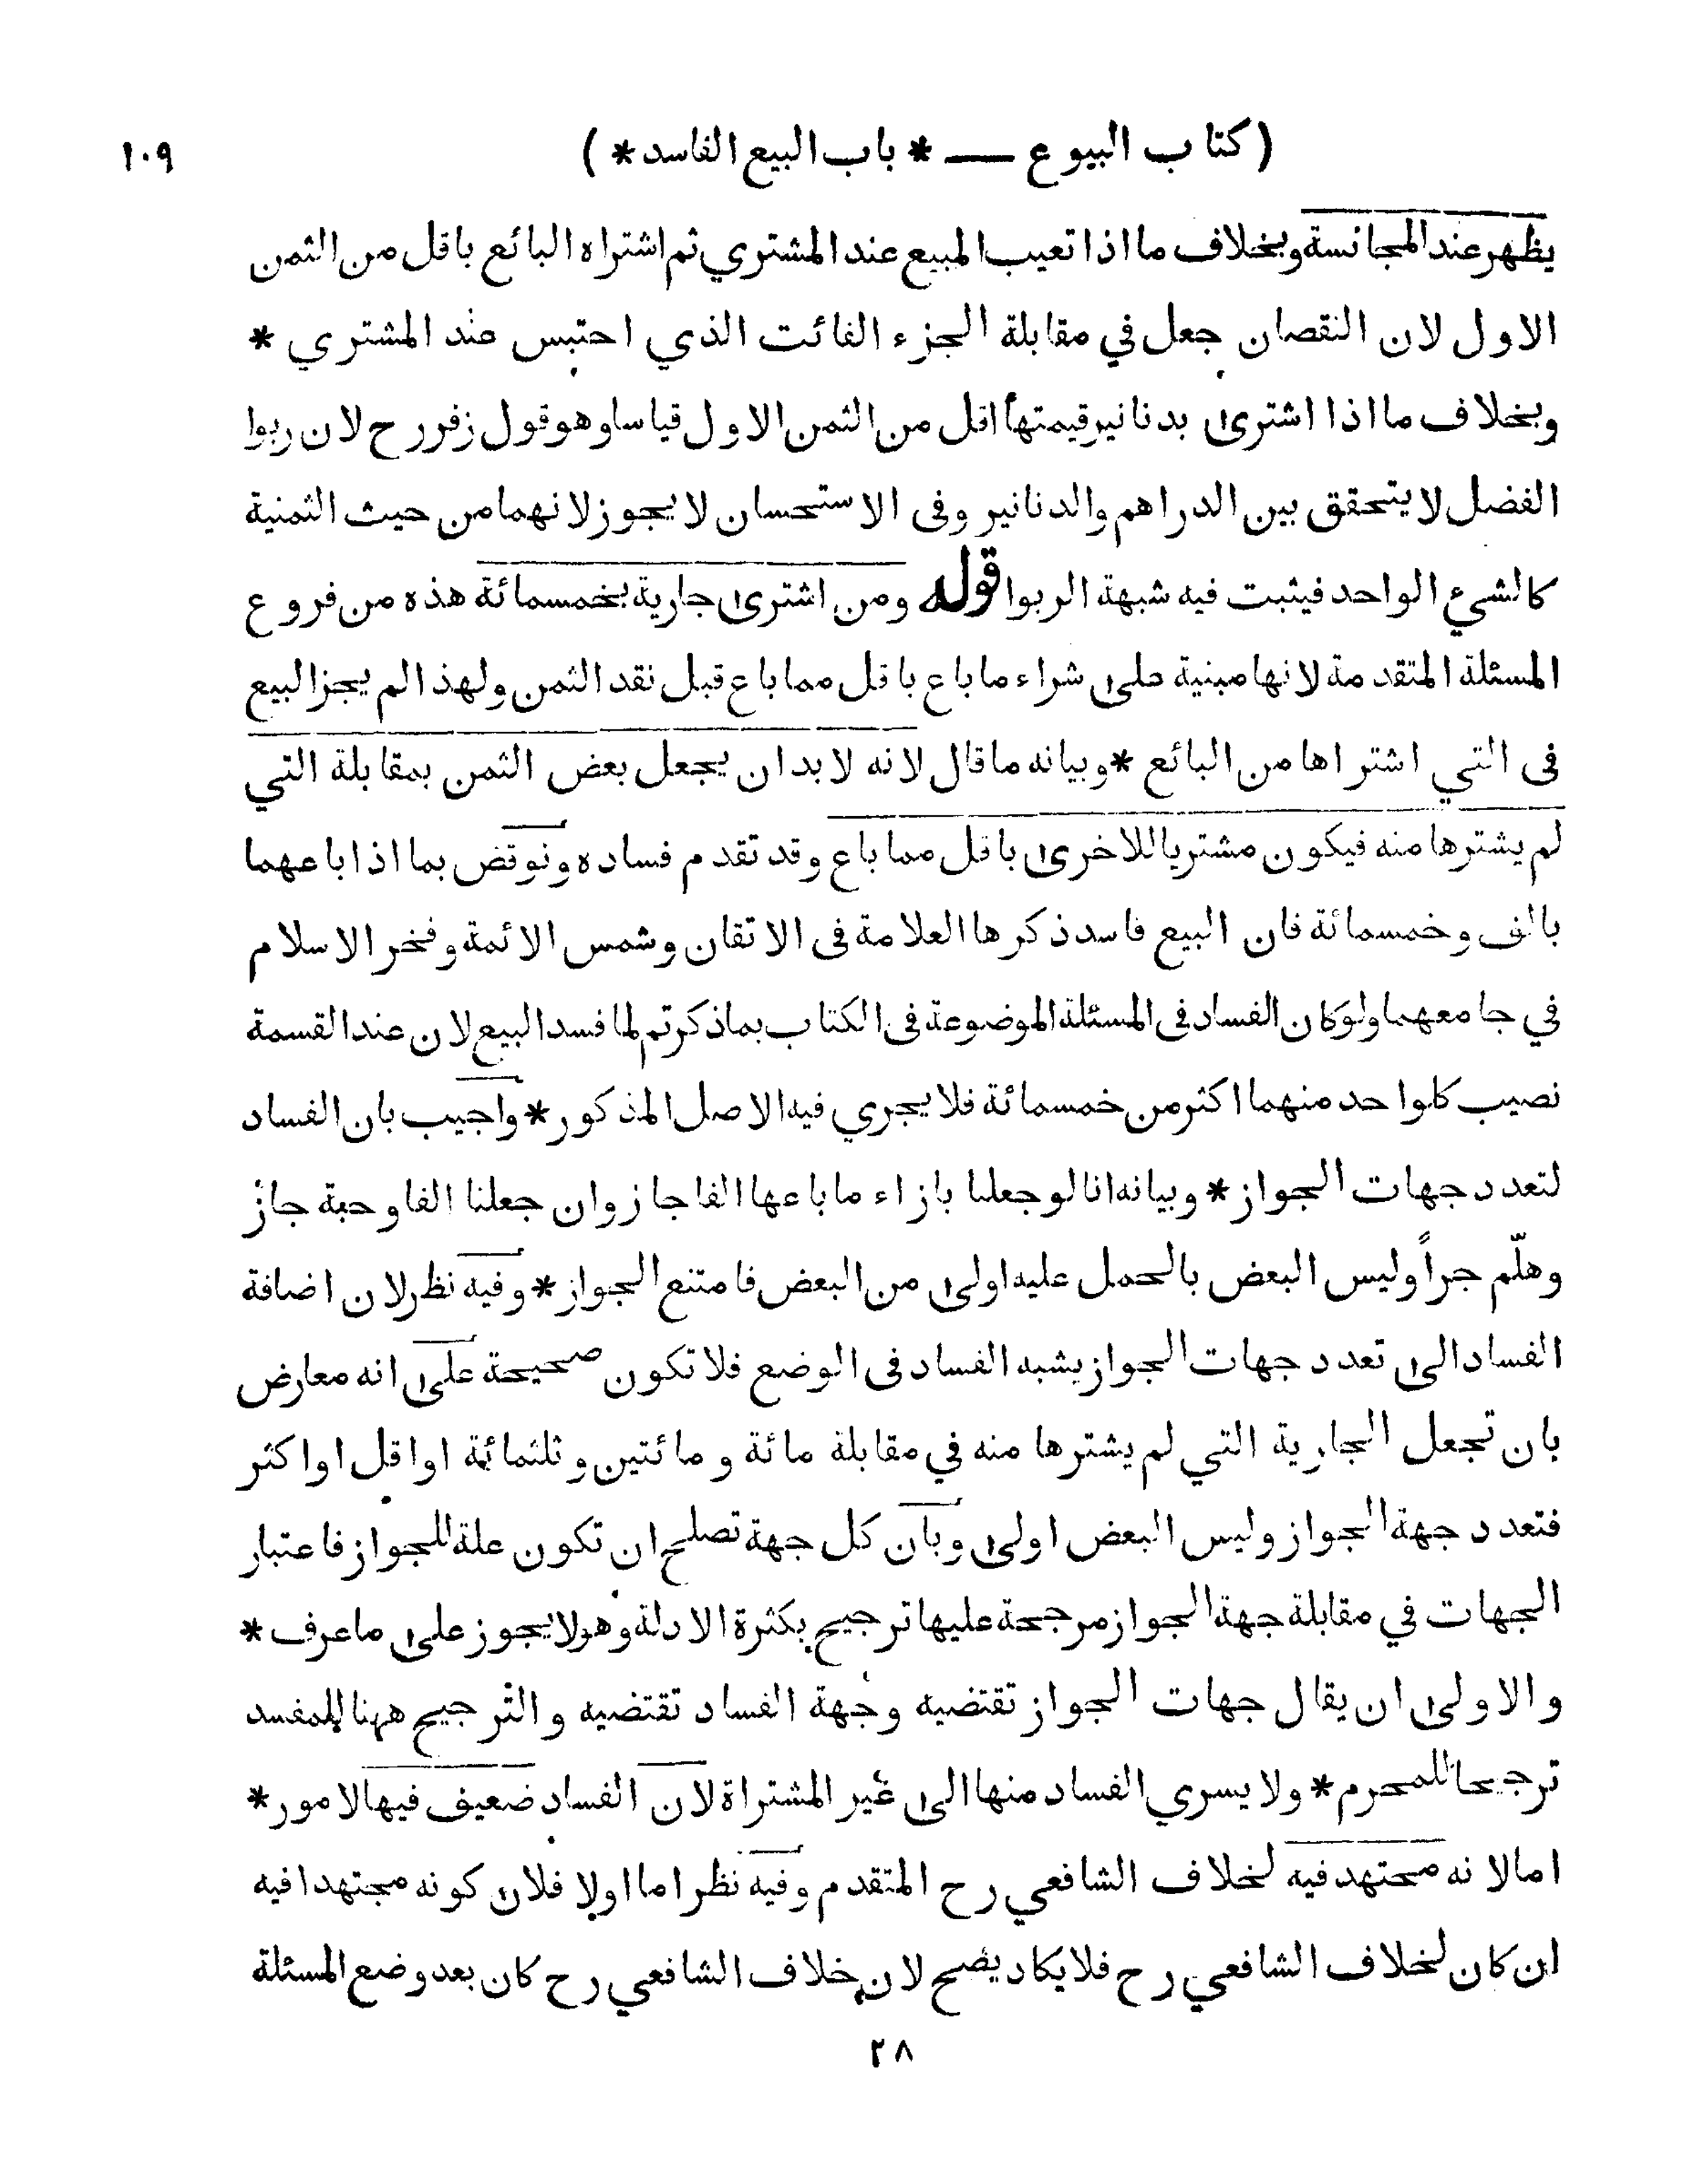 ( كتاب البيوع — * باب البيع الفاسد * )
١٠٩
يظهر عند المجانسة وبخلاف ما اذا تعيب المبيع عند المشتري ثم اشتراه البائع باقل من الثمن
الاول لان النقصان جعل في مقابلة الجزء الفائت الذي احتبس عند المشتري *
وبخلاف ما اذا اشترى بدنانير قيمتها اقل من الثمن الاول قياسا وهو قول زفر رح لان ربوا
الفضل لا يتحقق بين الدراهم والدنانير وفى الاستحسان لا يجوز لانهما من حيث الثمنية
كالشيء الواحد فيثبت فيه شبهة الربوا قوله ومن اشترى جارية بخمسمائة هذه من فروع
المسئلة المتقدمة لانها مبنية على شراء ما باع باقل مما باع قبل نقد الثمن ولهذا لم يجز البيع
فى التي اشتراها من البائع * وبيانه ما قال لانه لا بد ان يجعل بعض الثمن بمقابلة التي
لم يشترها منه فيكون مشتريا للاخرى باقل مما باع وقد تقدم فساده ونوقض بما اذا باعهما
بالف وخمسمائة فان البيع فاسد ذكرها العلامة فى الاتقان وشمس الائمة وفخر الاسلام
في جامعهما ولو كان الفساد فى المسئلة الموضوعة فى الكتاب بما ذكرتم لما فسد البيع لان عند القسمة
نصيب كلواحد منهما اكثر من خمسمائة فلا يجري فيه الاصل المذكور * واجيب بان الفساد
لتعدد جهات الجواز * وبيانه انا لو جعلنا بازاء ما باعها الفا جاز وان جعلنا الفا وحبة جاز
وهلّم جراً وليس البعض بالحمل عليه اولى من البعض فامتنع الجواز * وفيه نظر لان اضافة
الفساد الى تعدد جهات الجواز يشبه الفساد فى الوضع فلا تكون صحيحة على انه معارض
بان تجعل الجارية التي لم يشترها منه في مقابلة مائة ومائتين وثلثمائة او اقل او اكثر
فتعدد جهة الجواز وليس البعض اولى وبان كل جهة تصلح ان تكون علة للجواز فاعتبار
الجهات في مقابلة جهة الجواز مرجحة عليها ترجيح بكثرة الادلة وهو لا يجوز على ما عرف *
والاولى ان يقال جهات الجواز تقتضيه وجهة الفساد تقتضيه والترجيح ههنا للمفسد
ترجيحا للمحرم * ولا يسري الفساد منها الى غير المشتراة لان الفساد ضعيف فيها لامور *
اما لانه مجتهد فيه لخلاف الشافعي رح المتقدم وفيه نظر اما اولا فلان كونه مجتهدا فيه
ان كان لخلاف الشافعي رح فلا يكاد يصح لان خلاف الشافعي رح كان بعد وضع المسئلة
٢٨